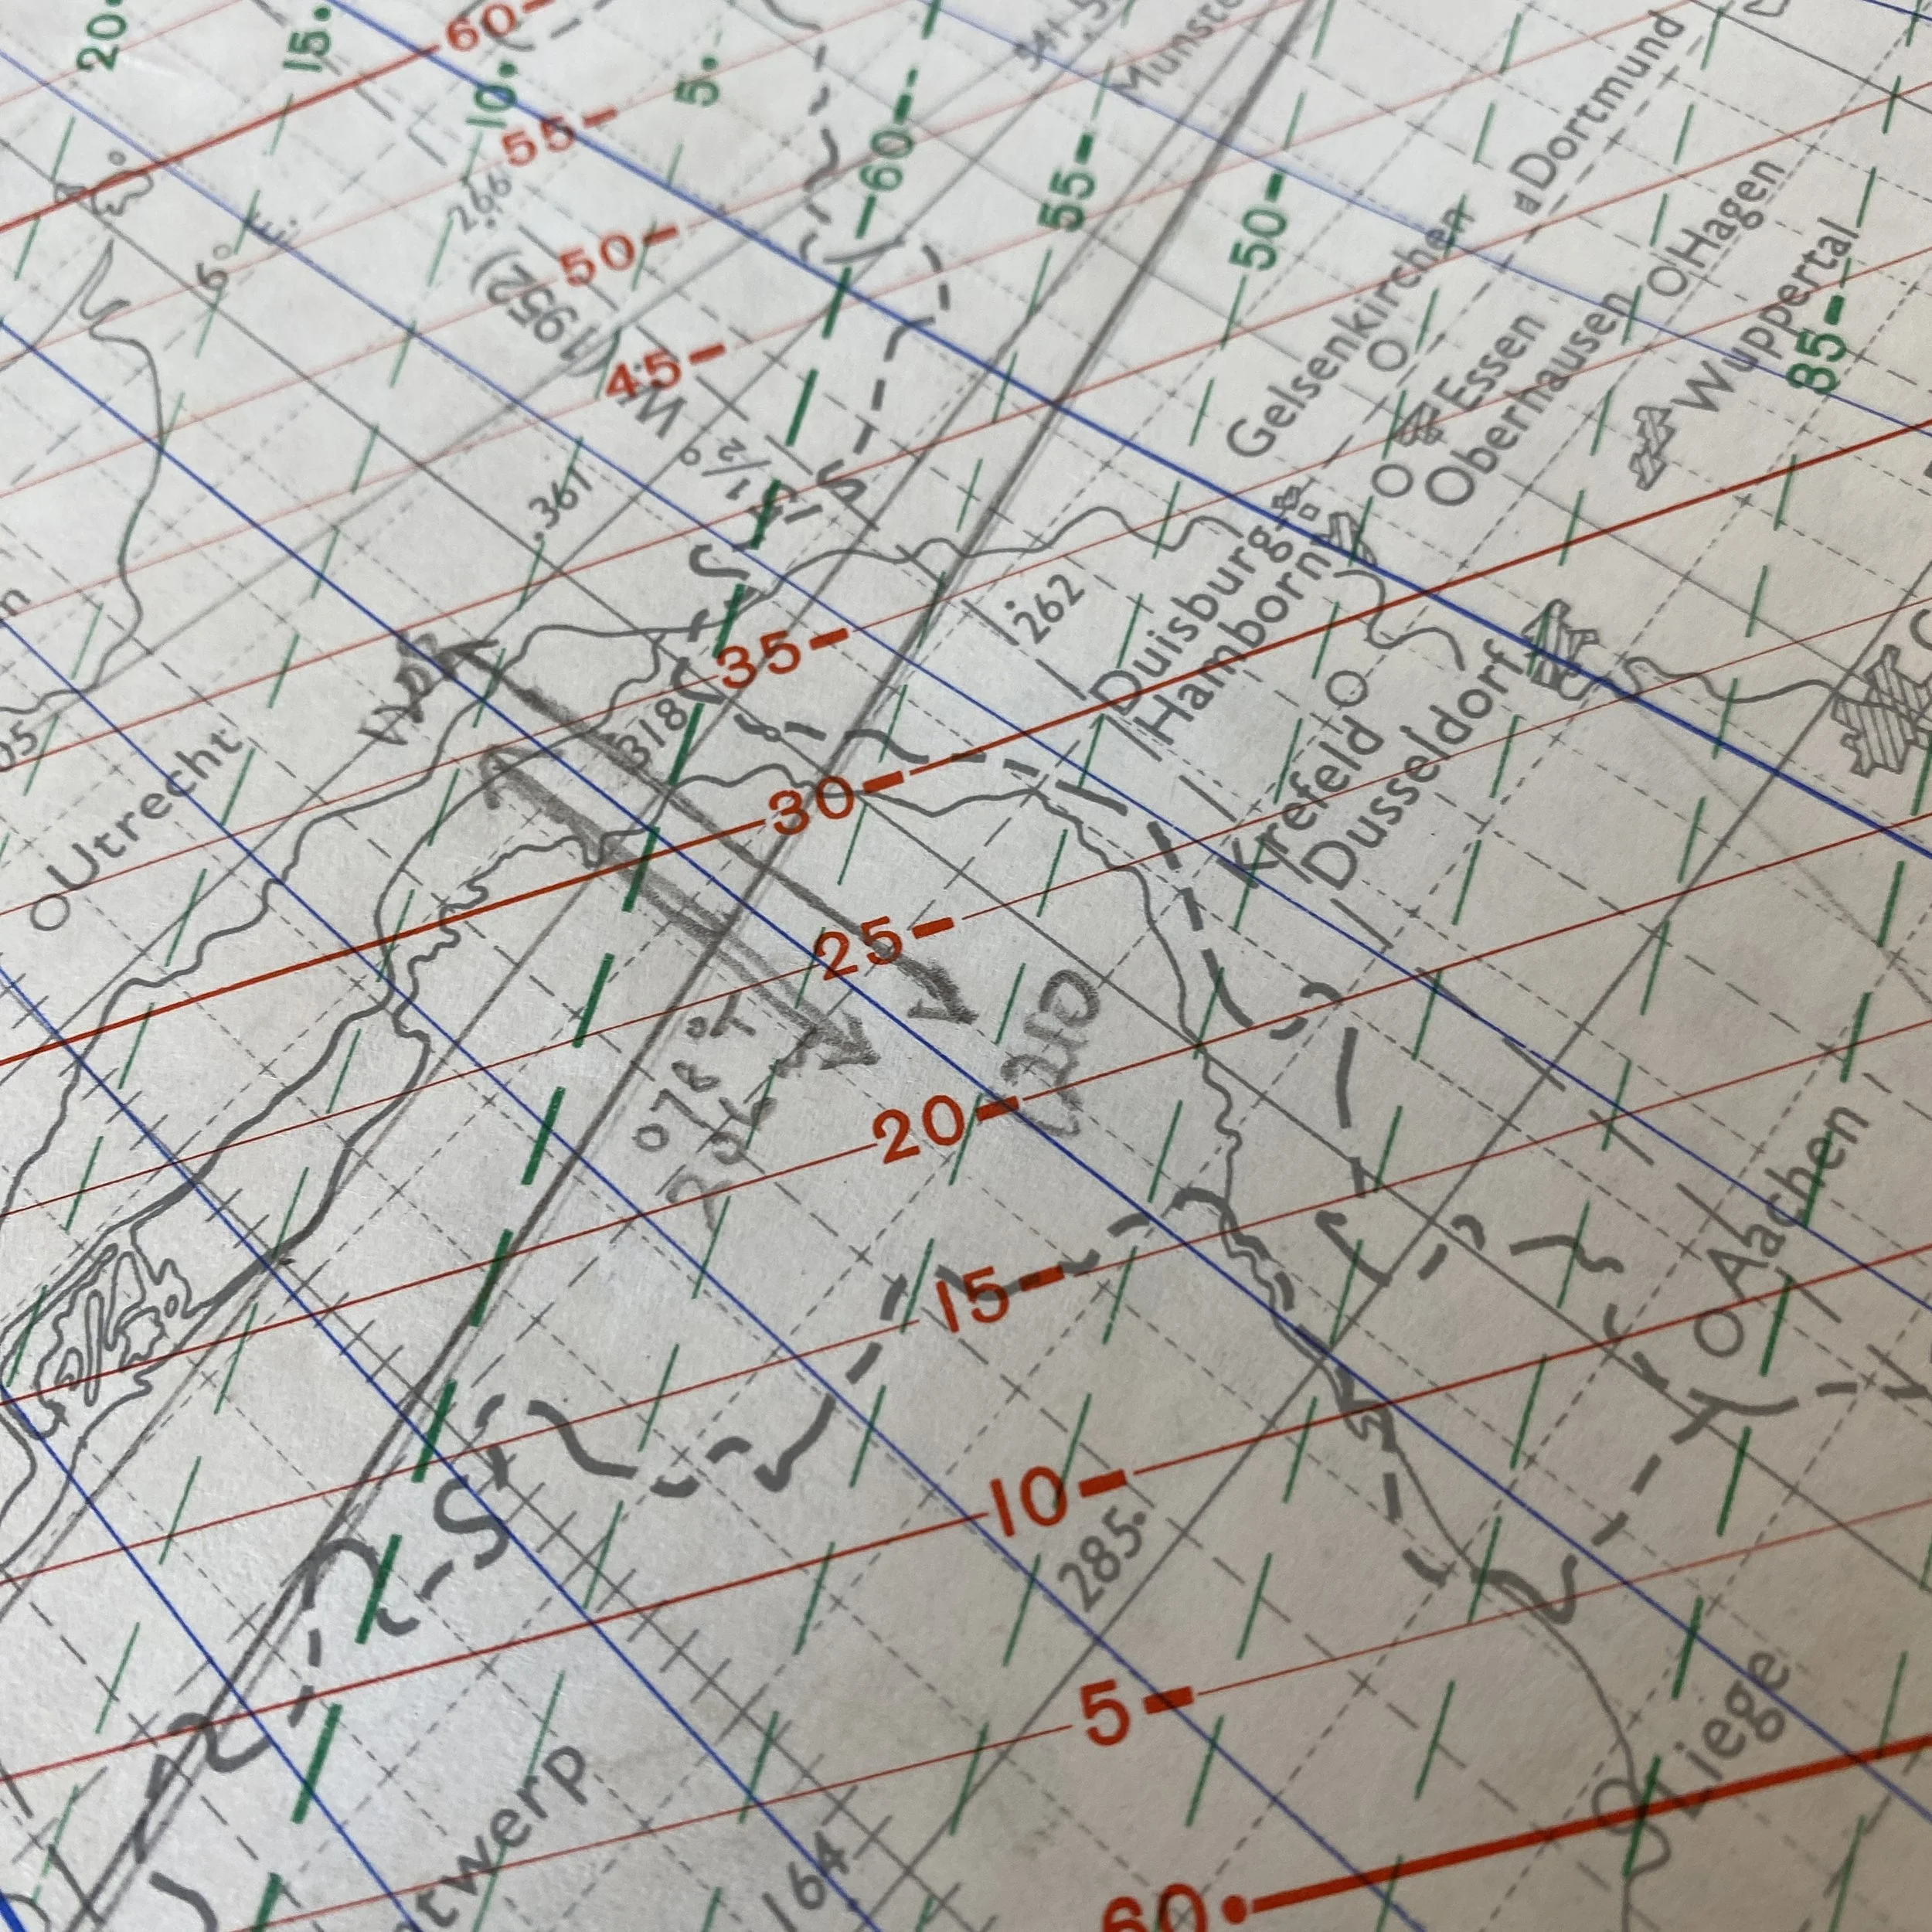 20.
15.
10.
5.
60
60
55
50
45
35
30
25
20
15
10
5
60
55
50
85
Munste
Dortmund
Hagen
Gelsenkirchen
Essen
Oberhausen
Wuppertal
Duisburg-
Hamborn
Krefeld
Dusseldorf
Utrecht
Aachen
Liege
twerp
6° E.
.266
(1952)
W.
1/2°
.361
.262
318
285.
164
078°T
(210